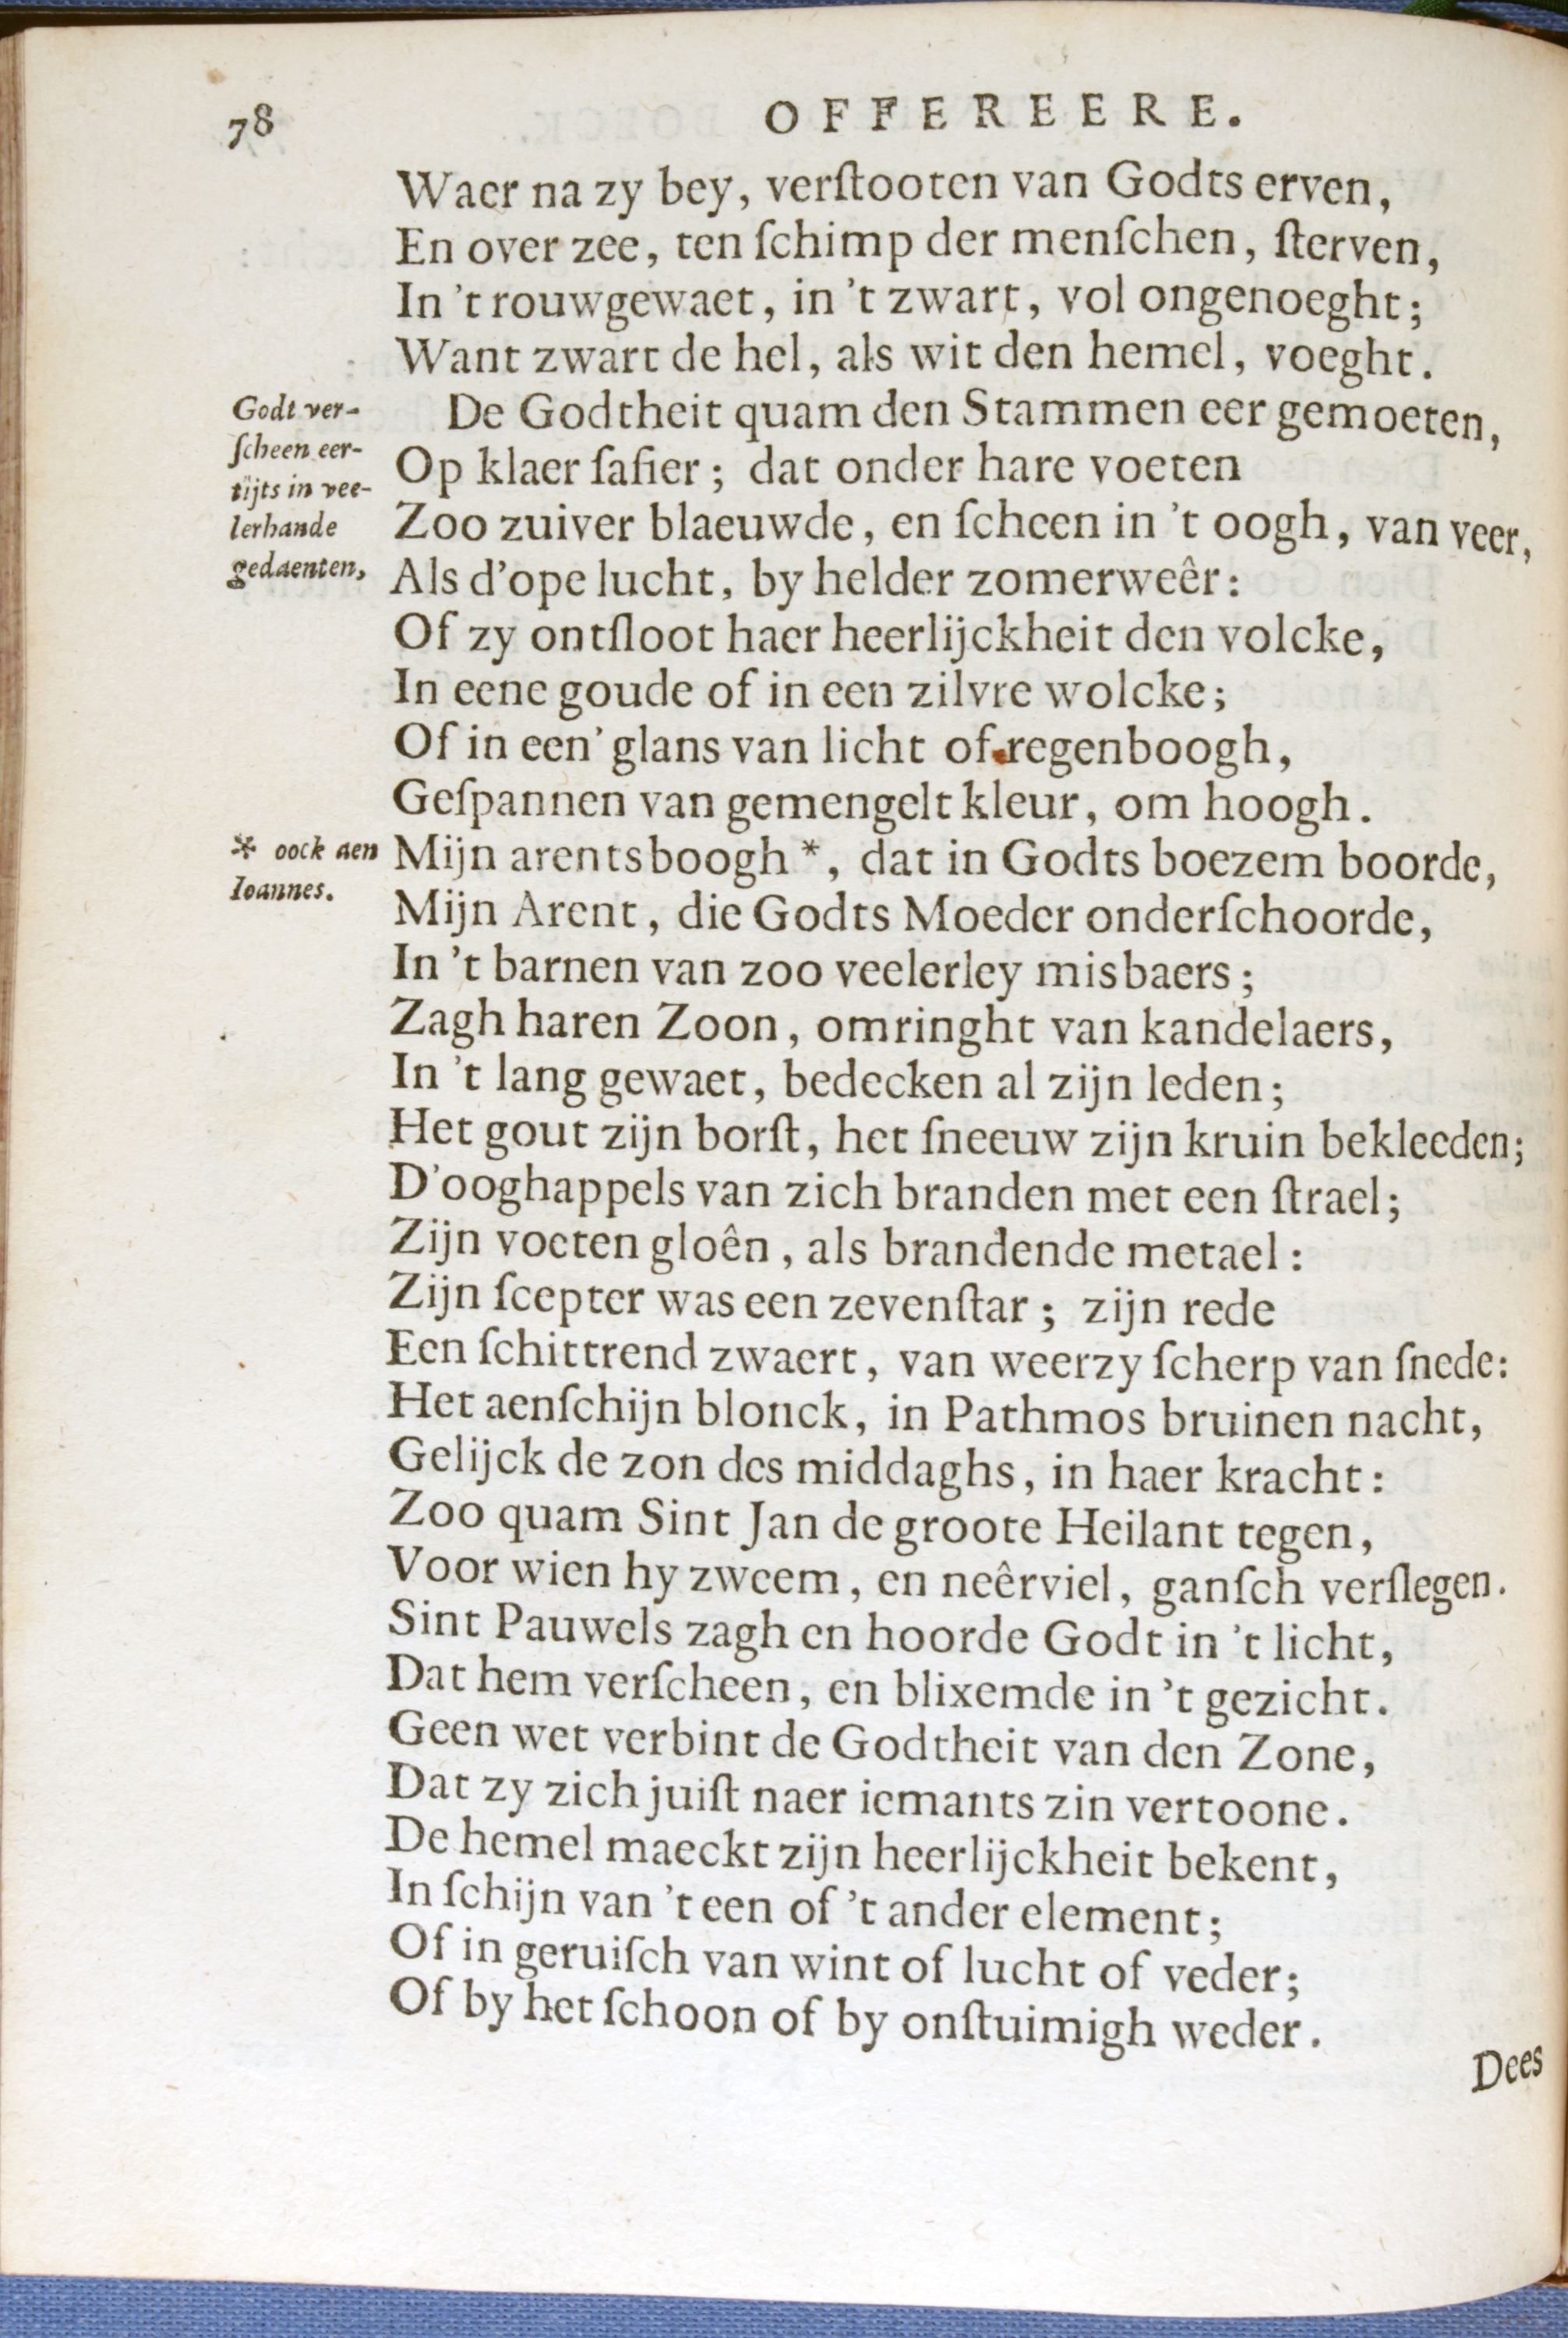 78
OFFEREERE.
Waer na zy bey, verſtooten van Godts erven,
En over zee, ten ſchimp der menſchen, ſterven,
In 't rouwgewaet, in 't zwart, vol ongenoeght;
Want zwart de hel, als wit den hemel, voeght.
Godt ver-
ſcheen eer-
tijts in vee-
lerhande
gedaenten,
De Godtheit quam den Stammen eer gemoeten,
Op klaer ſafier; dat onder hare voeten
Zoo zuiver blaeuwde, en ſcheen in 't oogh, van veer,
Als d'ope lucht, by helder zomerweêr:
Of zy ontſloot haer heerlijckheit den volcke,
In eene goude of in een zilvre wolcke;
Of in een' glans van licht of regenboogh,
Geſpannen van gemengelt kleur, om hoogh.
* oock aen
Ioannes.
Mijn arentsboogh *, dat in Godts boezem boorde,
Mijn Arent, die Godts Moeder onderſchoorde,
In 't barnen van zoo veelerley misbaers;
Zagh haren Zoon, omringht van kandelaers,
In 't lang gewaet, bedecken al zijn leden;
Het gout zijn borſt, het ſneeuw zijn kruin bekleeden;
D'ooghappels van zich branden met een ſtrael;
Zijn voeten gloên, als brandende metael:
Zijn ſcepter was een zevenſtar; zijn rede
Een ſchittrend zwaert, van weerzy ſcherp van ſnede:
Het aenſchijn blonck, in Pathmos bruinen nacht,
Gelijck de zon des middaghs, in haer kracht:
Zoo quam Sint Jan de groote Heilant tegen,
Voor wien hy zweem, en neêrviel, ganſch verſlegen.
Sint Pauwels zagh en hoorde Godt in 't licht,
Dat hem verſcheen, en blixemde in 't gezicht.
Geen wet verbint de Godtheit van den Zone,
Dat zy zich juiſt naer iemants zin vertoone.
De hemel maeckt zijn heerlijckheit bekent,
In ſchijn van 't een of 't ander element;
Of in geruiſch van wint of lucht of veder;
Of by het ſchoon of by onſtuimigh weder.
Dees